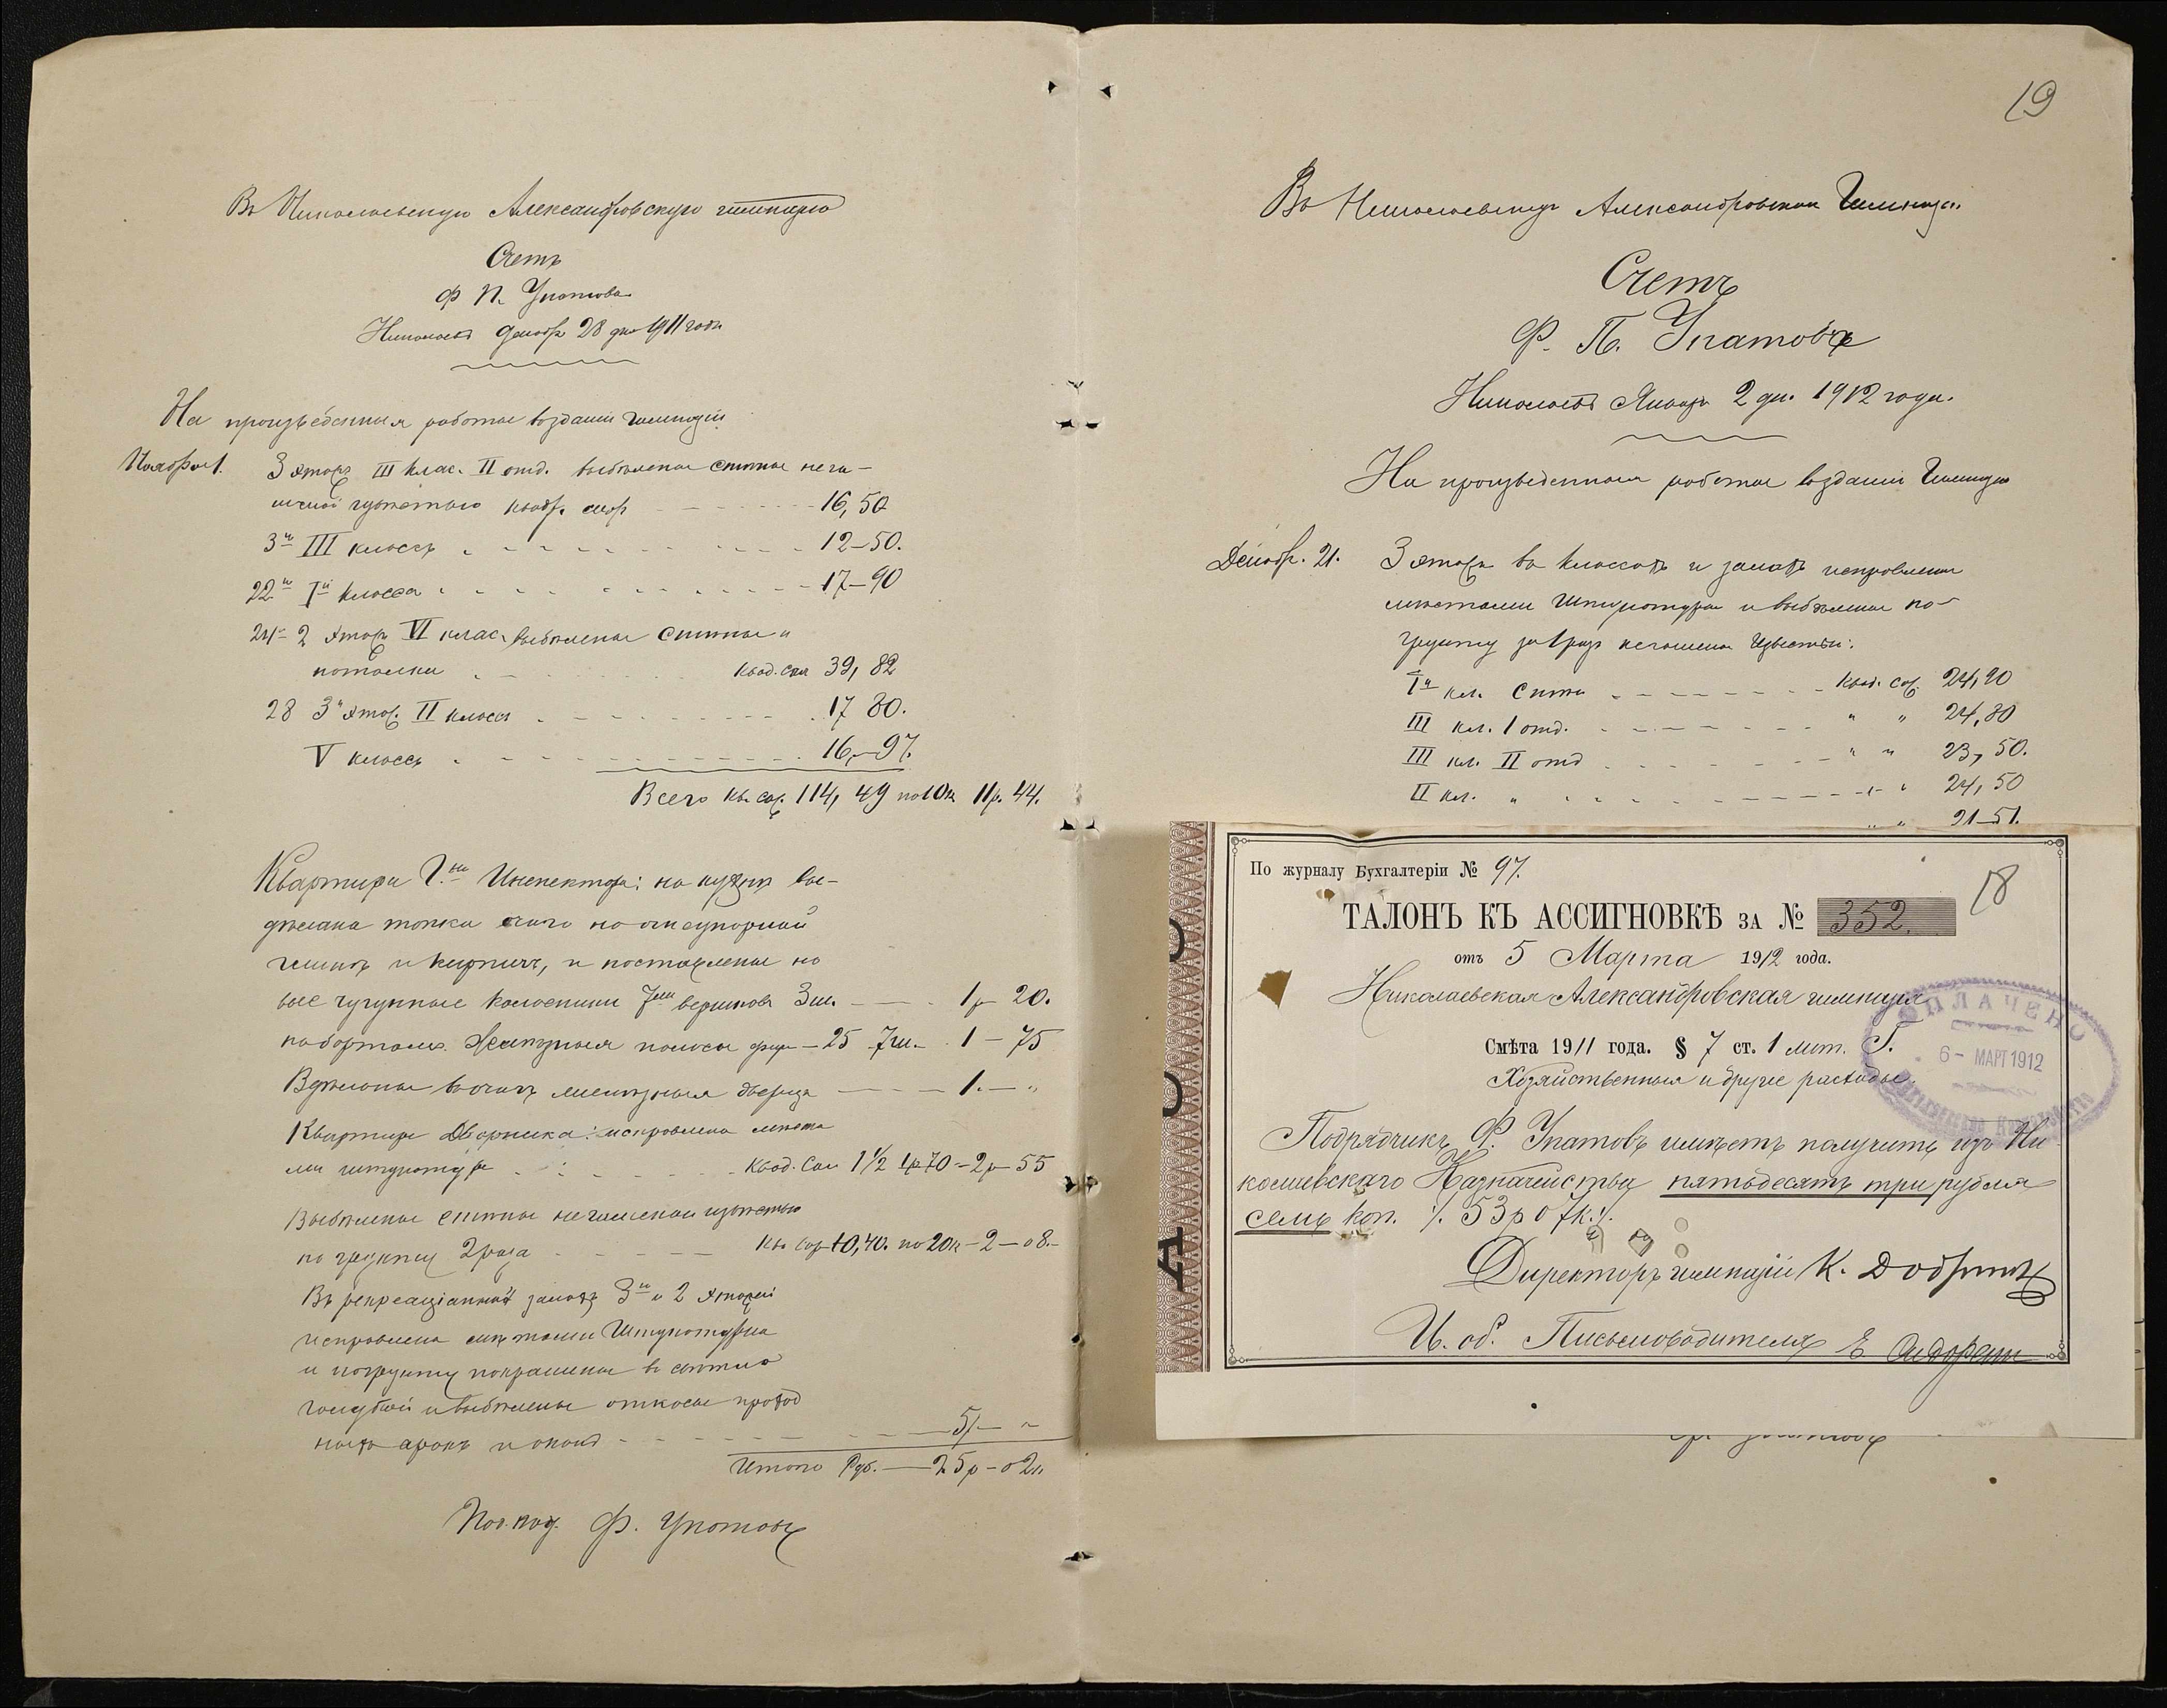 Въ Николаевскую Александровскую гимназію
Счетъ
Ф П. Упатова
Николаевъ Декабр 28 дня 1911 года
На произведенныя работы въ зданіи гимназіи
Ноября 1. 3 этажъ III клас. II отд. выбѣлены стѣны нега-
шеной известью квадр. саж 16,50
3го III классъ 12–50.
22го Iй класса 17–90
24го 2 этаж VI клас. выбѣлены стѣны и
потолки квад. саж 39,82
28 3й этаж. II класса 17 80.
V классъ 16,–97.
Всего кв. саж. 114,49 по 10к 11р. 44.
Квартира Г.на Инспектора: на кухнѣ вы-
дѣлана топка очага на огнеупорной
глинѣ и кирпичъ, и поставлены но
вые чугунные колосники 7ми вершковъ 3ш. 1р 20.
на бортахъ. Желѣзныя полосы фун – 25 7ш. 1 – 75
Вдѣланы въ очагъ желѣзныя дверца 1. – "
Квартира Дворника: исправлена места
ми штукатура квад. саж 1 1/2 1р 70 – 2р – 55
Выбѣлены стѣны негашеной известью
по грунту 2 раза кв. саж 10,40. по 20к – 2 – 08. –
Въ рекреаціонной залахъ 3го и 2 этажей
исправлена мѣстами Штукатурка
и по грунту покрашены въ свѣтло
голубой и выбѣлены откосы проход
ныхъ арокъ и оконъ 5 – "
Итого Руб. 25р – 02к
Ф. Упатовъ
19
Въ Николаевскую Александровскую Гимназію
Счетъ
Ф. П. Упатовъ
Николаевъ Январ 2 дн. 1912 года.
На произведенныя работы въ зданіи Гимназіи
Декабр. 21. 3 этажа въ классахъ и залахъ исправлены
мѣстами Штукатурка и выбѣлены по
грунту за 1 разъ негашеной Известью:
Iй кл. стѣны Квад. саж. 24,20
III кл. 1 отд. " " 24,80
III кл. II отд " " 23,50.
II кл. " " " 24,50
" " 21–51.
По журналу Бухгалтеріи № 97.
18
ТАЛОНЪ КЪ АССИГНОВКѢ ЗА № 352.
отъ 5 Марта 1912 года.
Николаевская Александровская гимназія
ОПЛАЧЕНО
6 – МАРТ 1912
Смѣта 1911 года. § 7 ст. 1 лит. Г.
Хозяйственные и другіе расходы.
Подрядчикъ Ф. Упатовъ имѣетъ получить изъ Ни
колаевскаго Казначейства пятьдесятъ три рубля
семь коп. ./. 53р 07к./.
Директоръ гимназіи К. Добрин
И. об. Письмоводителя Е.